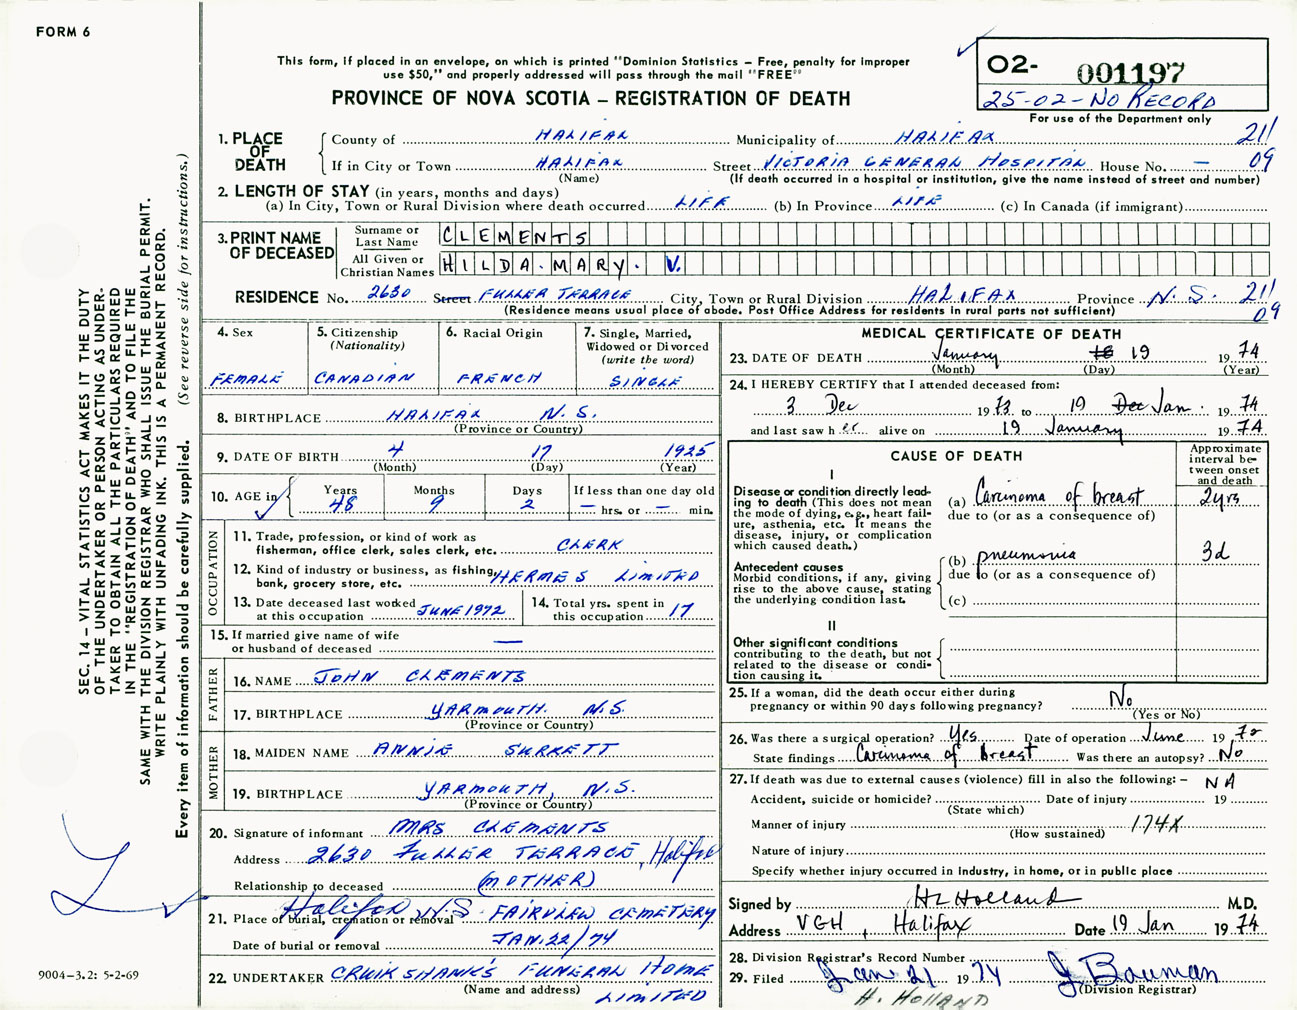 FORM 6
This form, if placed in an envelope, on which is printed "Dominion Statistics – Free, penalty for improper
use $50," and properly addressed will pass through the mail "FREE"
PROVINCE OF NOVA SCOTIA – REGISTRATION OF DEATH
02- 001197
25-02-NO RECORD
For use of the Department only
1. PLACE OF DEATH
County of HALIFAX Municipality of HALIFAX 21/
If in City or Town HALIFAX Street VICTORIA GENERAL HOSPITAL House No. — 09
(Name) (If death occurred in a hospital or institution, give the name instead of street and number)
2. LENGTH OF STAY (in years, months and days)
(a) In City, Town or Rural Division where death occurred LIFE (b) In Province LIFE (c) In Canada (if immigrant)
3. PRINT NAME OF DECEASED
Surname or Last Name CLEMENTS
All Given or Christian Names HILDA. MARY. V.
RESIDENCE No. 2630 Street FULLER TERRACE City, Town or Rural Division HALIFAX Province N.S. 21/
(Residence means usual place of abode. Post Office Address for residents in rural parts not sufficient) 09
4. Sex
FEMALE
5. Citizenship
(Nationality)
CANADIAN
6. Racial Origin
FRENCH
7. Single, Married,
Widowed or Divorced
(write the word)
SINGLE
8. BIRTHPLACE HALIFAX N.S.
(Province or Country)
9. DATE OF BIRTH 4 17 1925
(Month) (Day) (Year)
10. AGE in
Years Months Days If less than one day old
48 9 2 — hrs. or — min.
OCCUPATION
11. Trade, profession, or kind of work as
fisherman, office clerk, sales clerk, etc. CLERK
12. Kind of industry or business, as fishing,
bank, grocery store, etc. HERMES LIMITED
13. Date deceased last worked
at this occupation JUNE 1972
14. Total yrs. spent in
this occupation 17
15. If married give name of wife
or husband of deceased —
FATHER
16. NAME JOHN CLEMENTS
17. BIRTHPLACE YARMOUTH. N.S.
(Province or Country)
MOTHER
18. MAIDEN NAME ANNIE SURRETT
19. BIRTHPLACE YARMOUTH, N.S.
(Province or Country)
20. Signature of informant MRS CLEMENTS
Address 2630 FULLER TERRACE, Halifax
Relationship to deceased (MOTHER)
21. Place of burial, cremation or removal Halifax N.S. FAIRVIEW CEMETERY
Date of burial or removal JAN. 22/74
22. UNDERTAKER CRUIKSHANK'S FUNERAL HOME
(Name and address) LIMITED
MEDICAL CERTIFICATE OF DEATH
23. DATE OF DEATH January 18 19 1974
(Month) (Day) (Year)
24. I HEREBY CERTIFY that I attended deceased from:
3 Dec 1973 to 19 Dec Jan. 1974
and last saw h er alive on 19 January 1974
CAUSE OF DEATH
Approximate
interval be-
tween onset
and death
I
Disease or condition directly lead-
ing to death (This does not mean
the mode of dying, e.g., heart fail-
ure, asthenia, etc. It means the
disease, injury, or complication
which caused death.)
(a) Carcinoma of breast 2yrs
due to (or as a consequence of)
Antecedent causes
Morbid conditions, if any, giving
rise to the above cause, stating
the underlying condition last.
(b) pneumonia 3d
due to (or as a consequence of)
(c)
II
Other significant conditions
contributing to the death, but not
related to the disease or condi-
tion causing it.
25. If a woman, did the death occur either during
pregnancy or within 90 days following pregnancy? No
(Yes or No)
26. Was there a surgical operation? Yes Date of operation June 1972
State findings Carcinoma of breast Was there an autopsy? No
27. If death was due to external causes (violence) fill in also the following: – NA
Accident, suicide or homicide? Date of injury 19
(State which)
Manner of injury 174X
(How sustained)
Nature of injury
Specify whether injury occurred in industry, in home, or in public place
Signed by HL Holland M.D.
Address VGH, Halifax Date 19 Jan 1974
28. Division Registrar's Record Number
29. Filed Jan 21 1974 J Bauman
(Division Registrar)
H. HOLLAND
SEC. 14 – VITAL STATISTICS ACT MAKES IT THE DUTY
OF THE UNDERTAKER OR PERSON ACTING AS UNDER-
TAKER TO OBTAIN ALL THE PARTICULARS REQUIRED
IN THE "REGISTRATION OF DEATH" AND TO FILE THE
SAME WITH THE DIVISION REGISTRAR WHO SHALL ISSUE THE BURIAL PERMIT.
WRITE PLAINLY WITH UNFADING INK. THIS IS A PERMANENT RECORD.
Every item of information should be carefully supplied. (See reverse side for instructions.)
9004-3.2: 5-2-69